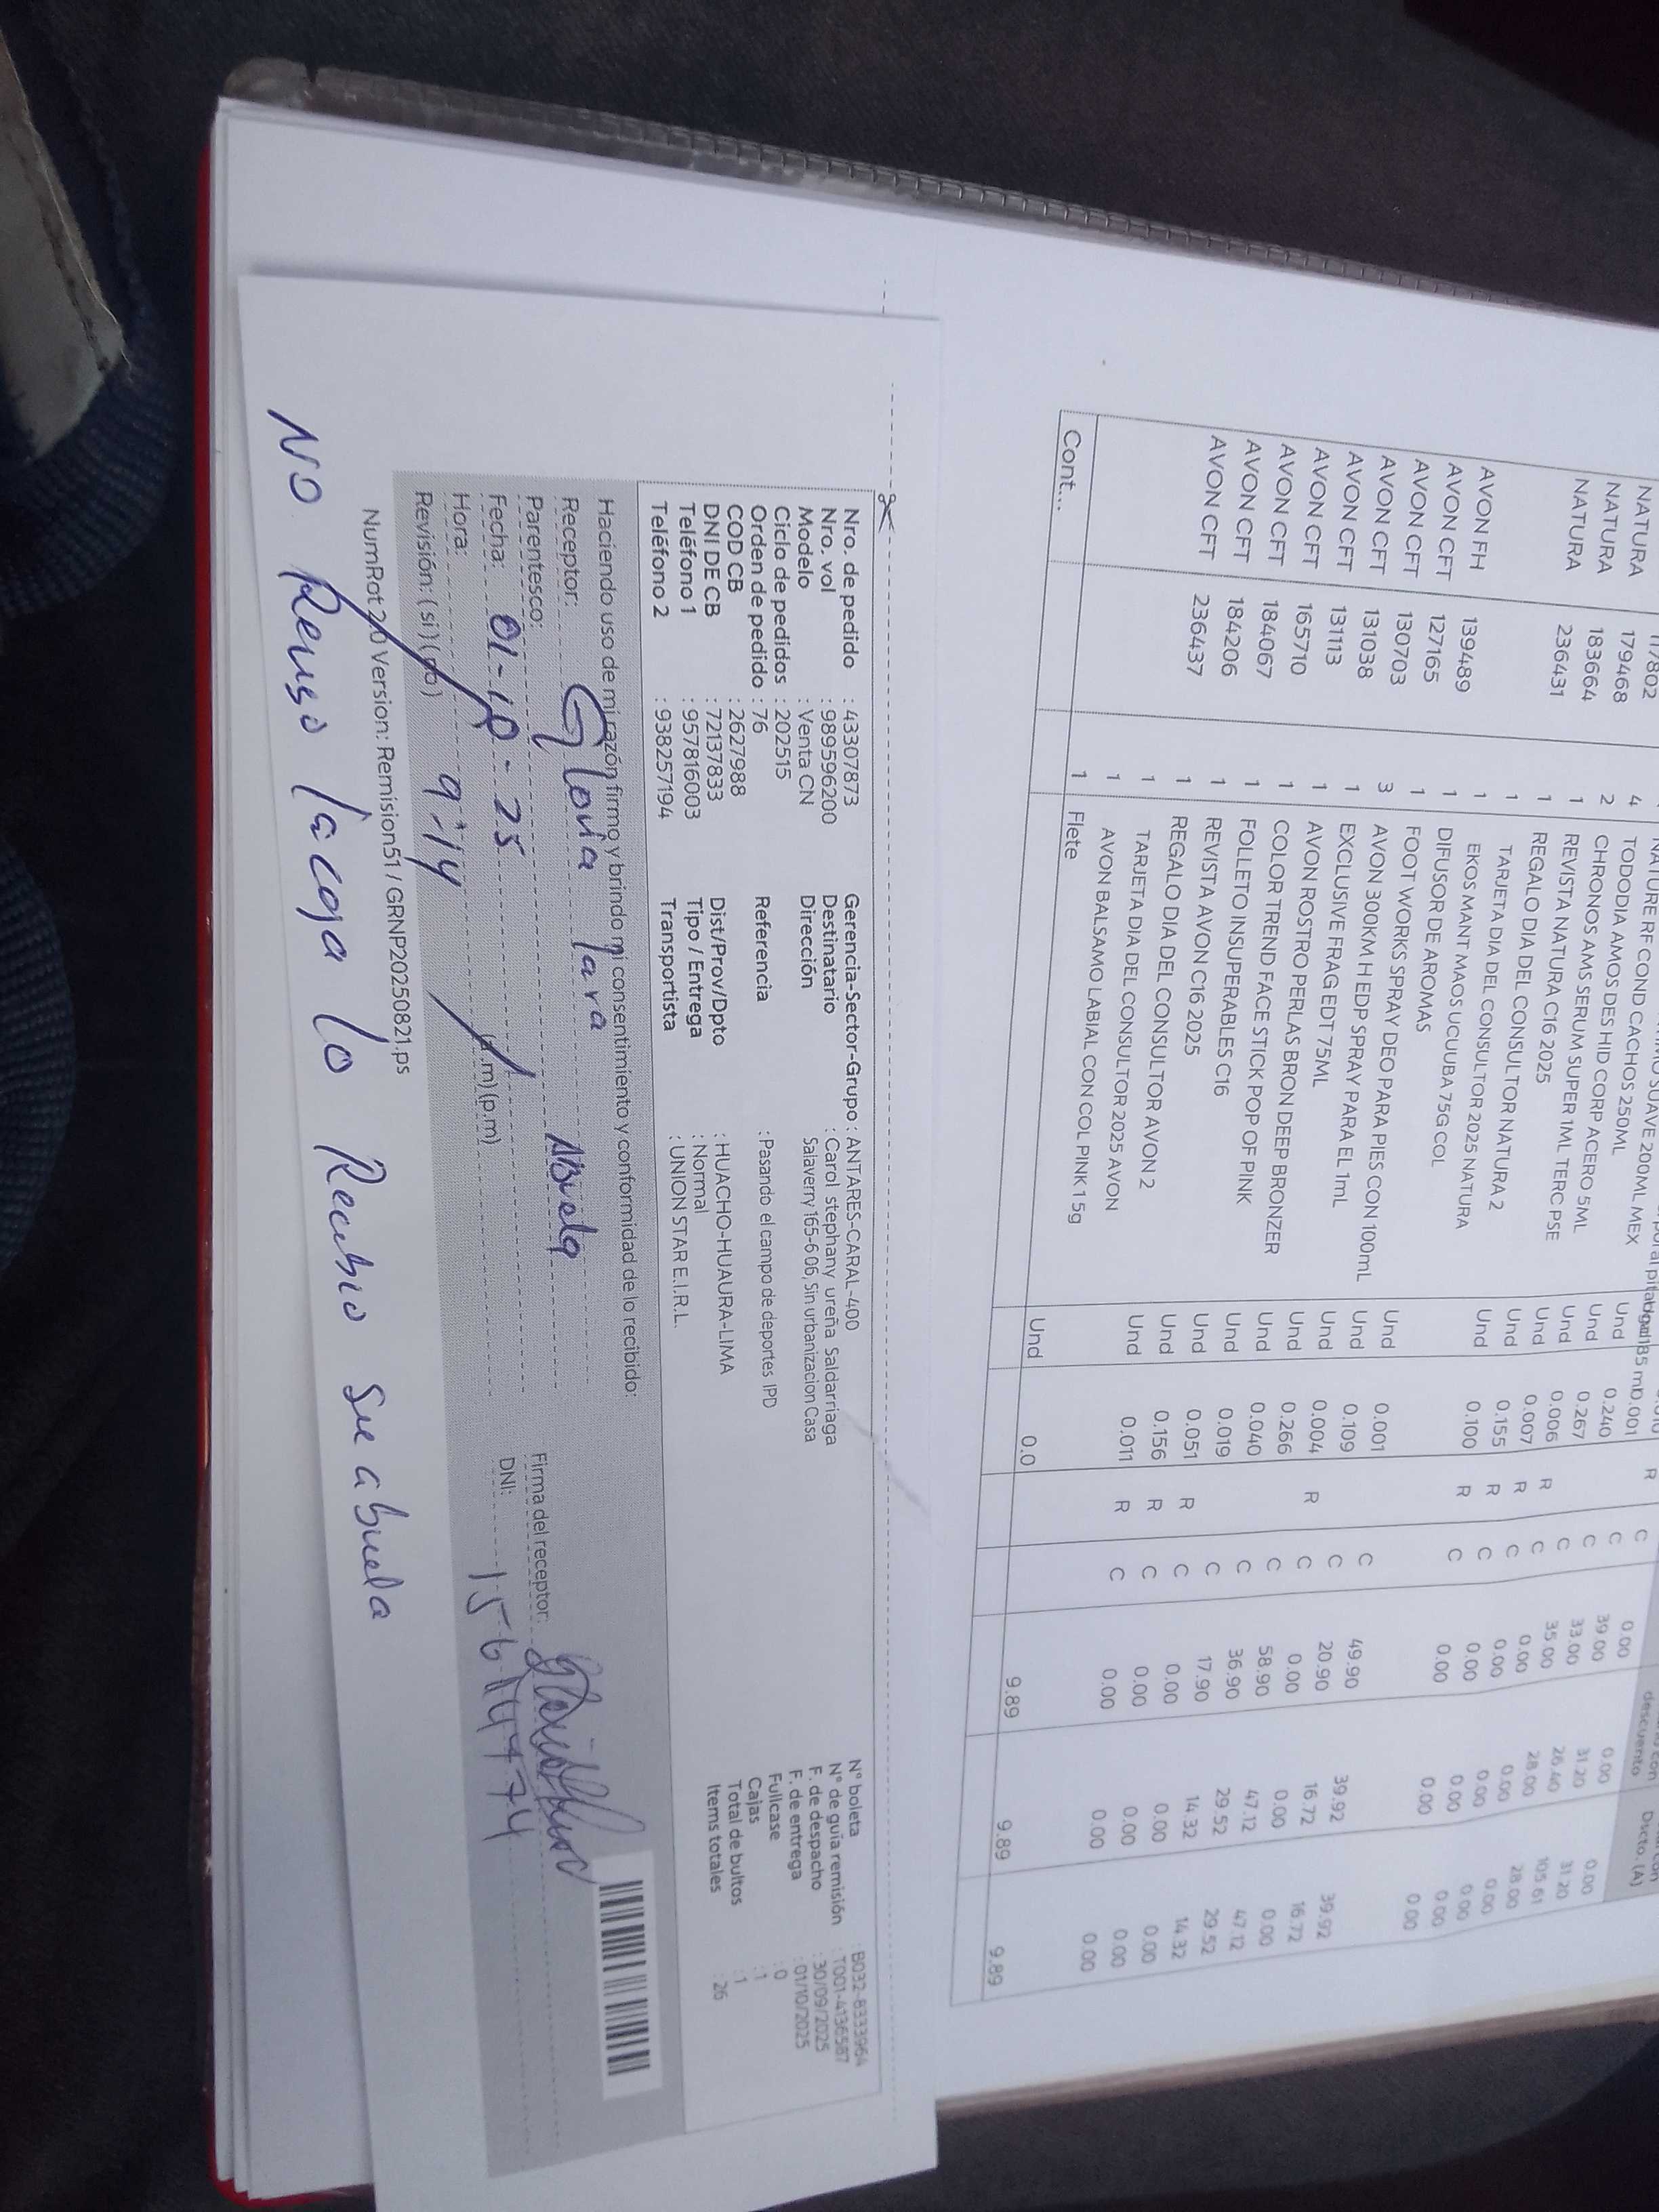 descuento Dscto. (A)
R C 0.00 0.00 0.00
NATURA 179468 4 TODODIA AMOS DES HID CORP ACERO 5ML Und 0.240 C 39.00 31.20 31.20
NATURA 183664 2 CHRONOS AMS SERUM SUPER 1ML TERC PSE Und 0.267 C 33.00 26.40 105.61
NATURA 236431 1 REVISTA NATURA C16 2025 Und 0.006 C 35.00 28.00 28.00
1 REGALO DIA DEL CONSULTOR NATURA 2 Und 0.007 R C 0.00 0.00 0.00
1 TARJETA DIA DEL CONSULTOR 2025 NATURA Und 0.155 R C 0.00 0.00 0.00
AVON FH 139489 1 EKOS MANT MAOS UCUUBA 75G COL Und 0.100 R C 0.00 0.00 0.00
AVON CFT 127165 1 DIFUSOR DE AROMAS R C 0.00 0.00 0.00
AVON CFT 130703 1 FOOT WORKS SPRAY DEO PARA PIES CON 100mL
AVON CFT 131038 3 AVON 300KM H EDP SPRAY PARA EL 1mL Und 0.001 C 49.90 39.92 39.92
AVON CFT 131113 1 EXCLUSIVE FRAG EDT 75ML Und 0.109 C 20.90 16.72 16.72
AVON CFT 165710 1 AVON ROSTRO PERLAS BRON DEEP BRONZER Und 0.004 R C 0.00 0.00 0.00
AVON CFT 184067 1 COLOR TREND FACE STICK POP OF PINK Und 0.266 C 58.90 47.12 47.12
AVON CFT 184206 1 FOLLETO INSUPERABLES C16 Und 0.040 C 36.90 29.52 29.52
AVON CFT 236437 1 REVISTA AVON C16 2025 Und 0.019 C 17.90 14.32 14.32
1 REGALO DIA DEL CONSULTOR AVON 2 Und 0.051 R C 0.00 0.00 0.00
1 TARJETA DIA DEL CONSULTOR 2025 AVON Und 0.156 R C 0.00 0.00 0.00
1 AVON BALSAMO LABIAL CON COL PINK 1 5g Und 0.011 R C 0.00 0.00 0.00
Cont... 1 Flete Und 0.0 9.89 9.89 9.89
Nro. de pedido : 43307873 Gerencia-Sector-Grupo : ANTARES-CARAL-400 N° boleta : B032-8333964
Nro. vol : 989596200 Destinatario : Carol stephany ureña Saldarriaga N° de guia remisión : T001-4136587
Modelo : Venta CN Dirección Salaverry 165-6 06, Sin urbanizacion Casa F. de despacho : 30/09/2025
Ciclo de pedidos : 202515 F. de entrega : 01/10/2025
Orden de pedido : 76 Referencia : Pasando el campo de deportes IPD Fullcase : 0
COD CB : 2627988 Cajas : 1
DNI DE CB : 72137833 Dist/Prov/Dpto : HUACHO-HUAURA-LIMA Total de bultos : 1
Teléfono 1 : 957816003 Tipo / Entrega : Normal Items totales : 26
Teléfono 2 : 938257194 Transportista : UNION STAR E.I.R.L.
Haciendo uso de mi razón firmo y brindo mi consentimiento y conformidad de lo recibido:
Receptor: Gloria Lara
Parentesco: Abuela Firma del receptor:
Fecha: 01-10-25 DNI: 15614474
Hora: 9:14 (a.m) (p.m)
Revisión: (si) (no)
NumRot 2.0 Version: Remision51 / GRNP20250821.ps
NO Reviso la caja lo Recibio su abuela